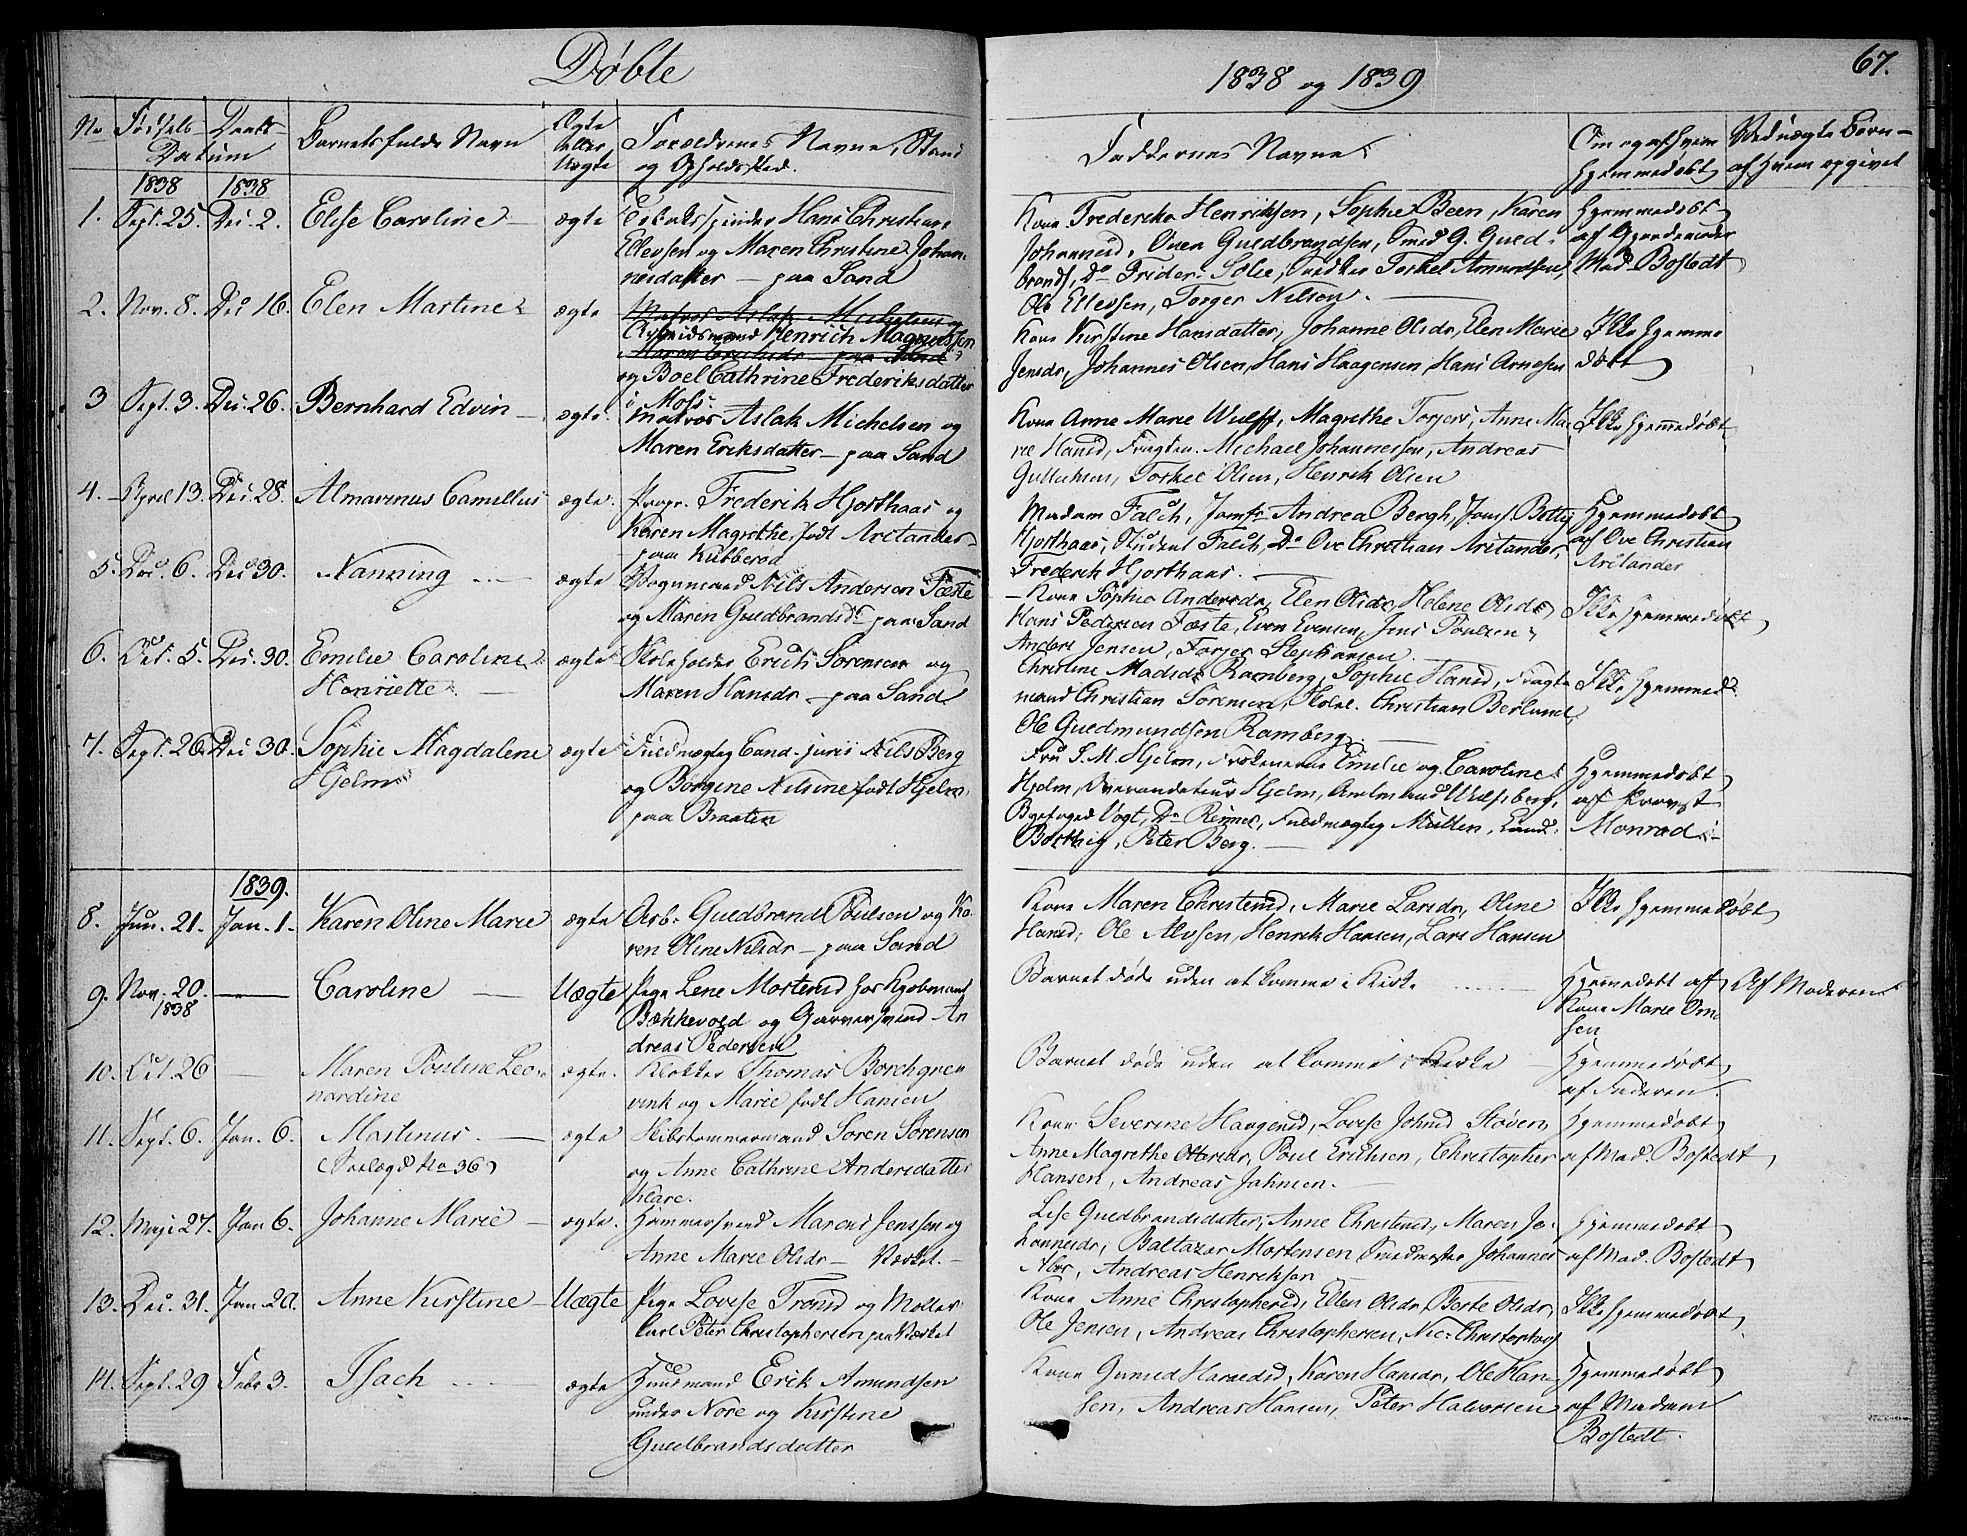 Døbte
1838 og 1839
67.
No Fødsels- Daabs- Datum
Barnets fulde Navn
Ægte eller Uægte
Forældrenes Navne, Stand og Opholdssted.
Faddernes Navne.
Om og af hvem hjemmedøbt
Ved uægte Børn af hvem opgivet
1838 1838
1. Sept. 25. Dec. 2. Elise Caroline — ægte Tobaksspinder Hans Christian
Ellevsen og Maren Christine Johan-
nesdatter — paa Sand
Kone Frederika Henriksen, Sophie Been, Karen
Johannesd, Guldbrandsen, Smed G. Guld-
brands, Do Frider. Torkel Amundsen,
Ole Ellevsen, Torger Nilson. —
Hjemmedøbt
af Gjordemoder
Mad. Bostedt
2. Nov. 8. Dec 16. Elen Martine ægte Matros Aslak Michelsen og
Arbeidsmand Henrich Magnussen
Maren Eriksdr — paa Sand
og Boel Cathrine Frederiksdatter
i Moss.
Kone Kirstine Hansdatter, Johanne Olsdr, Elen Marie
Jensdr, Johannes Olsen, Hans Haagensen, Hans Arnesen
Ikke hjemme
døbt
3 Sept. 3. Dec. 26. Bernhard Edvin — ægte. Matros Aslak Michelsen og
Maren Eriksdatter — paa Sand
Kone Anne Marie Wulff, Magrethe Torjers, Anne Ma-
rie Hansd, Fragtm. Michael Johannessen, Andreas
Gulliksen, Torkel Olsen, Henrik Olsen
Ikke hjemmedøbt
4. April 13. Dec. 28. Almarinus Camillus ægte. Propr. Frederik Hjorthaas og
Karen Magrethe, født Arctander
paa Kubberød
Madam Falch, Jomfr Andrea Bergh, Jomf. Betty
Hjorthaas, Student Falch, Do Ove Christian Arctander,
Frederik Hjorthaas. —
Hjemmedøbt
af Ove Christian
Arctander
5. Dec. 6. Dec 30. Nanning — ægte Vognmand Nils Anderson Fæste
og Maren Guldbrandsdr paa Sand
— Kone Sophie Andersdr, Elen Olsdr, Helene Olsdr,
Hans Pedersen Fæste, Even Evensen, Jens Poulsen,
Anders Jensen, Torjer Stephansen.
Ikke hjemmedøbt
6. Oct. 5. Dec. 30. Emilie Caroline ægte Skoleholder Erich Sørensen og
Henriette. — Maren Hansdr — paa Sand
Christine Madsdr Ramberg, Sophie Hansd, Fragte
mand Christian Sørensen, Skolel. Christian Berlund,
Ole Guldmundsen Ramberg. —
Ikke hjemmed
7. Sept. 26. Dec 30. Sophie Magdalene ægte Fuldmægtig Cand. juris Nils Berg
Hjelm og Børgine Nilsine født Hjelm
paa Braaten
Fru S. M. Hjelm, Frøkenerne Emilie og Caroline
Hjelm, Overauditeur Hjelm, Amtmand Wulfsberg,
Byefoged Vogt, Dr Renner, Fuldmægtig Müllen, Cand.
Peter Berg. —
Hjemmedøbt
af Provst
Monrad
1839.
8. Jun. 21. Jan. 1. Karen Oline Marie ægte Arb. Guldbrand Poulsen og Ka-
ren Oline Nilsdr — paa Sand
Kone Maren Christensd, Marie Larsdr, Oline
Hansd, Ole Alvsen, Henrik Hansen, Lars Hansen
Ikke hjemmedøbt
9. Nov. 20. 1838 — Caroline — Uægte Pige Lene Mortensd hos Kjøbmand
Bækkevold og Garversvend An
dreas Pedersen
Barnet døde uden at komme i Kirke
Hjemmedøbt af
Kone Marie Om
sen
Af Moderen
10. Oct 26 — Maren Pouline Leo- ægte. Klokker Thomas Borchgre
nardine vink og Marie født Hansen
Barnet døde uden at komme i Kirke
Hjemmedøbt
af Faderen.
11. Sept. 6. Jan. 6. Martinus. — ægte Skibstømmermand Søren Sørensen
No 36) og Anne Cathrine Andersdatter
Klare.
Kone Severine Haagensd, Lovise Johnsd Støvern
Anne Magrethe Ottersdr, Poul Erichsen, Christopher
Hansen, Andreas Jahnsen. —
Hjemmedøbt
af Mad. Bostedt
12. Maji 27. Jan 6. Johanne Marie — ægte. Hammersvend Marcus Jenssen og
Anne Marie Olsdr — Værket. —
Lise Guldbrandsdatter, Anne Christensd, Maren Jo-
hannesdr, Baltazar Mortensen Smedmester Johannes
Andreas Henriksen
Hjemmedøbt
af Mad. Bostedt
13. Dec. 31. Jan. 20. Anne Kirstine — Uægte Pige Lovise Tronsd og Møller
karl Peter Christophersen paa Værket
Kone Anne Christophersd, Ellen Olsdr, Berte Olsdr,
Ole Jensen, Andreas Christophersen, Nic. Christophers
Ikke hjemmedøbt
14. Sept. 29 Febr 3. Isach — ægte Huusmand Erik Amundsen
under Nore og Kirstine
Guldbrandsdatter
Kone Gunild Haraldsd, Karen Hansdr, Ole Han-
sen, Andreas Hansen, Peter Halvorsen
Hjemmedøbt
af Madam
Bostedt.